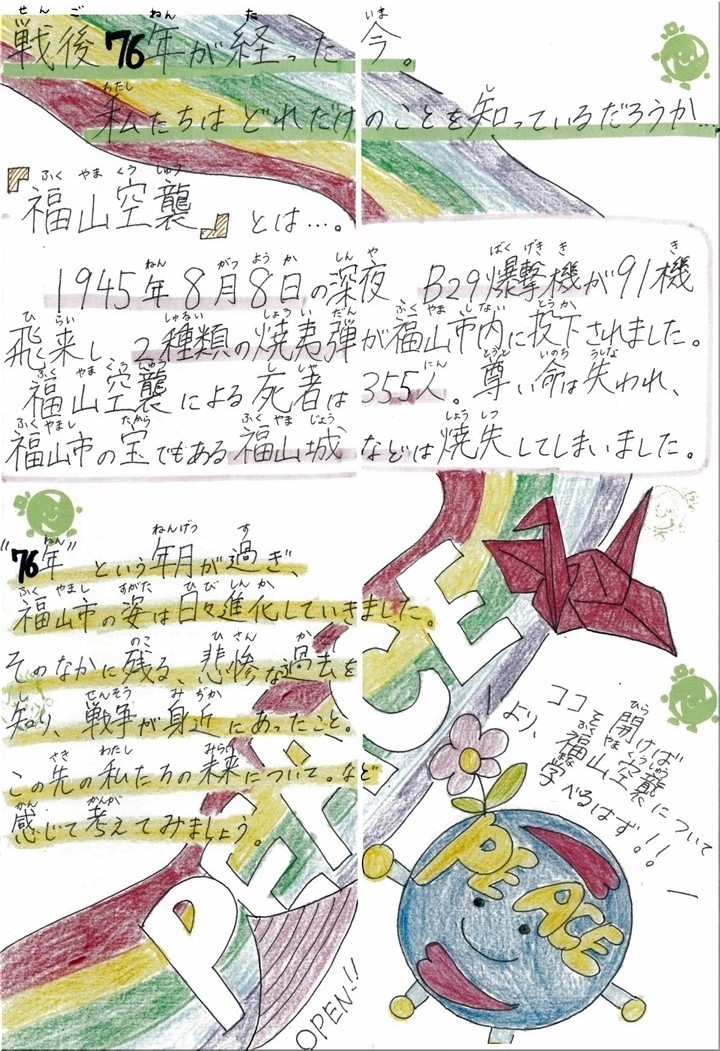 戦後76年が経った今。
私たちはどれだけのことを知っているだろうか…。
『福山空襲』とは…。
1945年8月8日の深夜 B29爆撃機が91機
飛来し、2種類の焼夷弾が福山市内に投下されました。
福山空襲による死者は355人。尊い命は失われ、
福山市の宝でもある福山城などは焼失してしまいました。
"76年"という年月が過ぎ、
福山市の姿は日々進化していきました。
そのなかに残る、悲惨な過去を
知り、戦争が身近にあったこと。
この先の私たちの未来について。など
感じて考えてみましょう。
PEACE
ココを開けば
より、福山空襲について
学べるはず!!
PEACE
OPEN!!